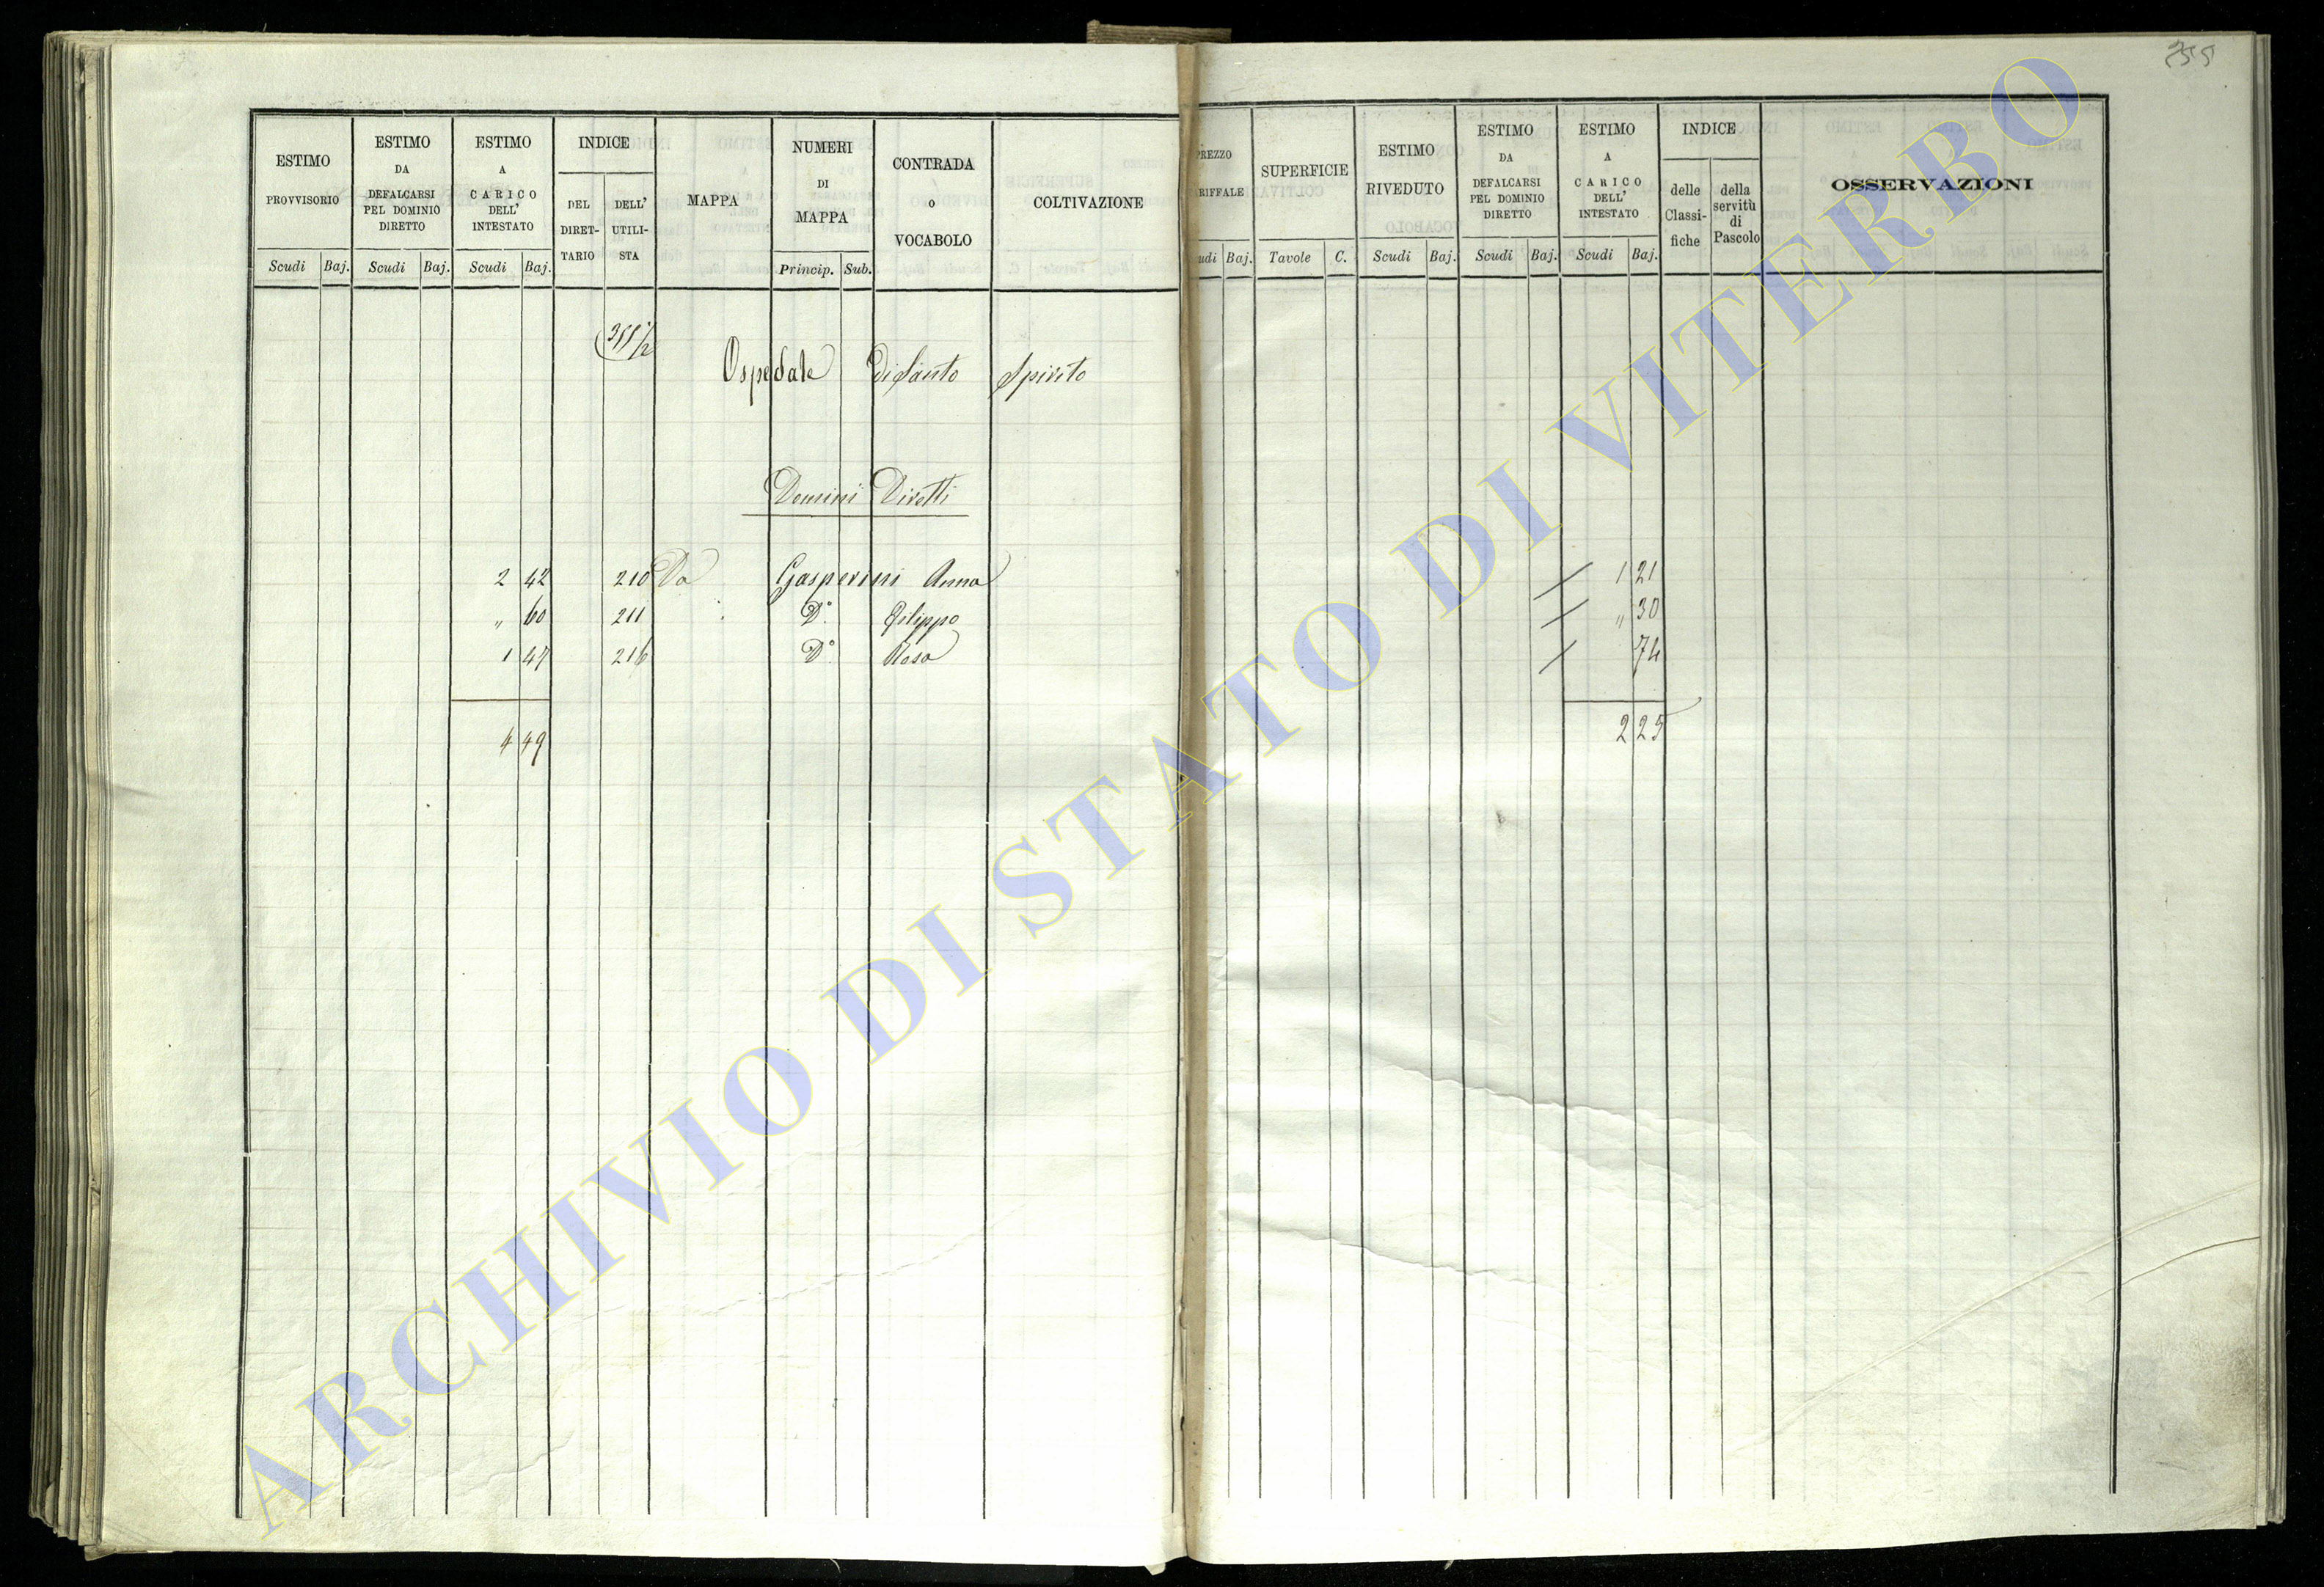 255
ESTIMO PROVVISORIO
ESTIMO DA DEFALCARSI PEL DOMINIO DIRETTO
ESTIMO A CARICO DELL' INTESTATO
INDICE
DEL DIRET-TARIO
DELL' UTILI-STA
MAPPA
NUMERI DI MAPPA
CONTRADA O VOCABOLO
COLTIVAZIONE
Scudi Baj. Scudi Baj. Scudi Baj. Princip. Sub.
PREZZO
RIFFALE
SUPERFICIE
ESTIMO RIVEDUTO
ESTIMO DA DEFALCARSI PEL DOMINIO DIRETTO
ESTIMO A CARICO DELL' INTESTATO
INDICE
delle Classi-fiche
della servitù di Pascolo
OSSERVAZIONI
udi Baj. Tavole C. Scudi Baj. Scudi Baj. Scudi Baj.
Ospedale di Santo Spirito
Domini Diretti
2 42 210 Da Gasperini Anna 1 21
" 60 211 D.º Filippo " 30
1 47 216 D.º Rosa 74
4 49 2 25
ARCHIVIO DI STATO DI VITERBO